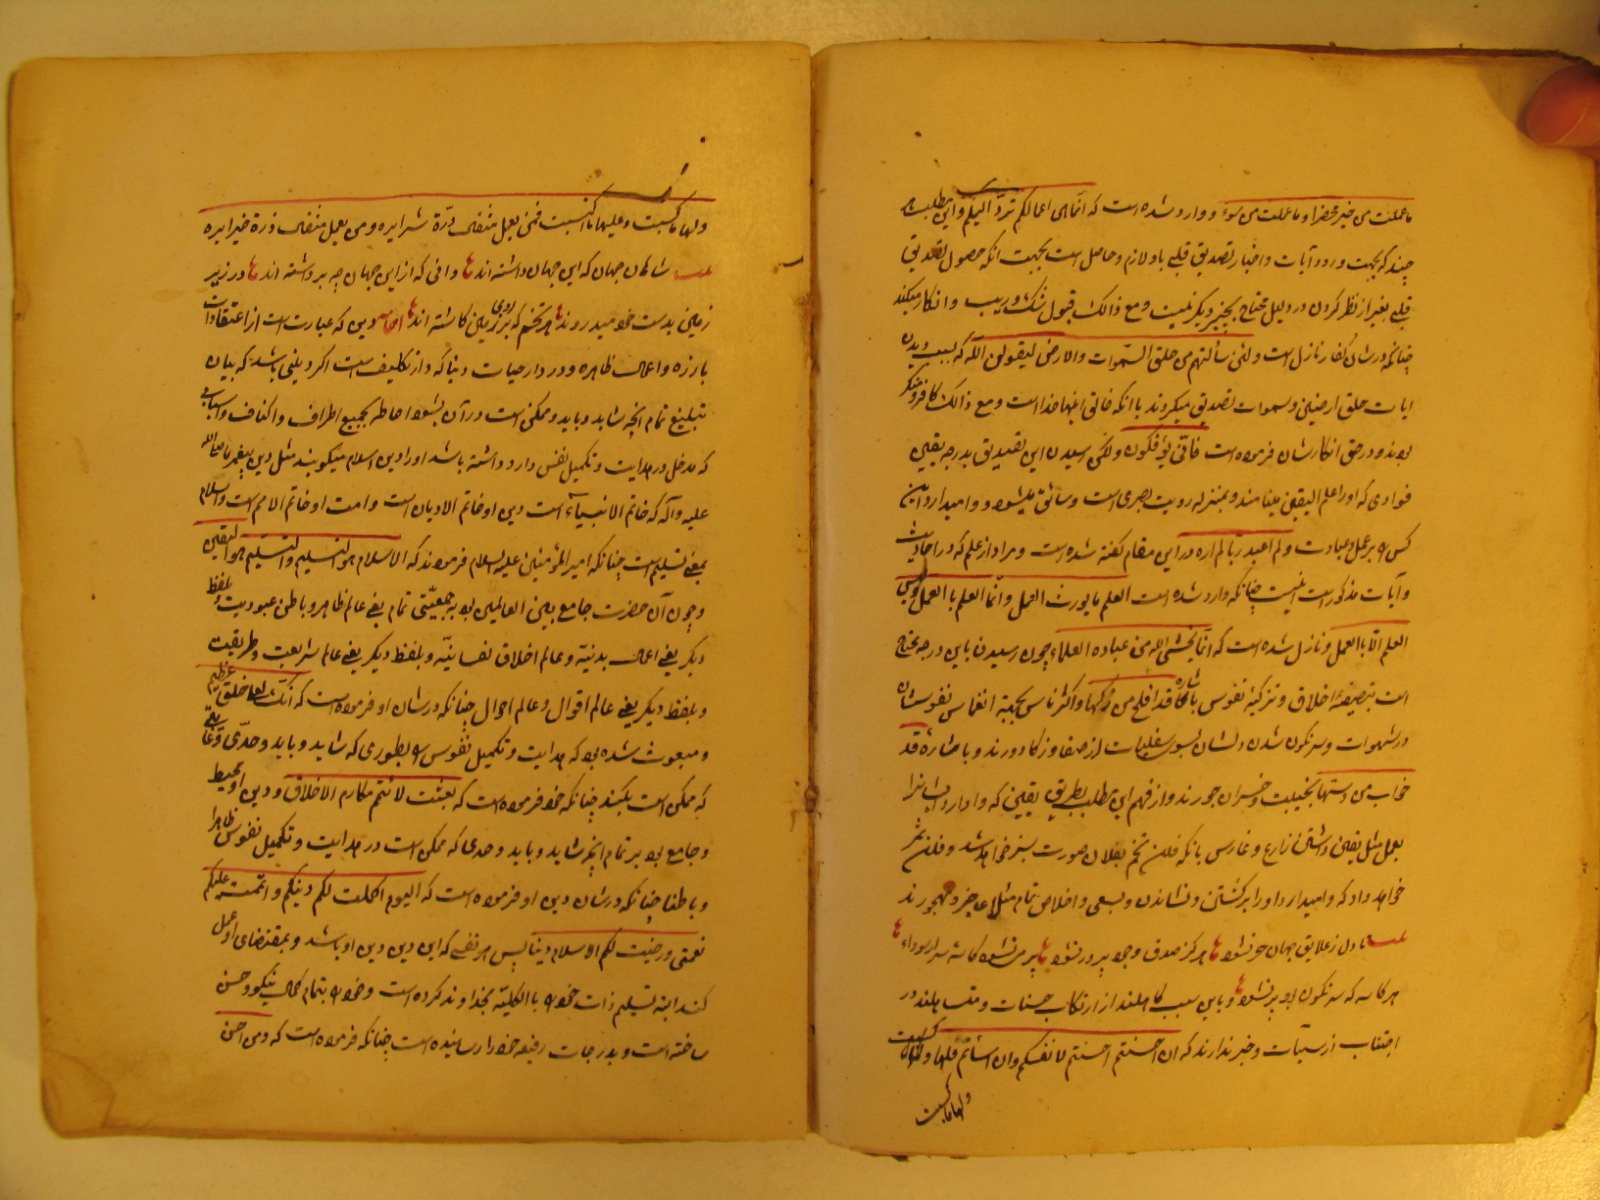 ما عملت من خیر محضرا و ما عملت من سوء و وارد شده است که انما هی اعمالکم ترد الیکم و این مطلب هر
چند که بجهت ورود آیات و اخبار تصدیق قلبی باو لازم و حاصل است بجهت انکه حصول تصدیق
قلبی بغیر از نظر کردن در دلیل محتاج بچیز دیگر نیست و مع ذالک قبول شک و ریب و انکار میکند
چنانکه در شان کفار نازل است و لئن سألتهم من خلق السموات والارض لیقولن الله که بسبب دیدن
ایات خلق ارضین و سموات تصدیق میکردند باانکه خالق اینها خدا است و مع ذالک کافر و منکر
بودند و در حق انکارشان فرموده است فانی یؤفکون و لکن رسیدن این تصدیق بدرجه یقین
فوادی که اورا علم الیقین مینامند و بمنزله رویت بصری است و سائق میشود و وامیدارد این
کس را بر عمل و عبادت و لم اعبد ربا لم اره در این مقام گفته شده است و مراد از علم که در احادیث
و آیات مذکور است اینست چنانکه وارد شده است العلم ما یورث العمل و انما العلم بالعمل و لیس
العلم الا باالعمل و نازل شده است که انما یخشی الله من عباده العلماء چون رسیدن باین درجه محتاج
است بتصفیهٔ اخلاق و تزکیهٔ نفوس باشاره قد افلح من زکیها و اکثر ناس بجهة انغماس نفوسشان
در شهوات و سرنگون شدن دلشان بسوی سفلیات از صفا و زکا دورند و باشاره قد
خاب من دسیها بخیبت و خسران جورند و از فهم این مطلب بطریق یقینی که وادارد ایشانرا
بعمل مثل یقین داشتن زارع و غارس بانکه فلان تخم بفلان صورت سبز خواهد شد و فلان ثمر
خواهد داد که وامیدارد اورا بر کشتن و نشاندن و بسعی و اخلاص تمام مثلا عاجز و مهجورند
تا دل ز علایق جهان حر نشود هرگز صدف وجود پر در نشود پر می نشود کاسه سر از سوداء
هر کاسه که سرنگون بود پر نشود و باین سبب کاهلند از ارتکاب حسنات و متساهلند در
اجتناب از سیآت و خبر ندارند که ان احسنتم احسنتم لانفسکم وان اسأتم فلها و لها ما کسبت
ولها ما کسبت
ولها ما کسبت و علیها ما اکتسبت فمن یعمل مثقال ذرة شرا یره و من یعمل مثقال ذرة خیرا یره
شاهان جهان که این جهان داشته اند وانی که از این جهان چه برداشته اند در زیر
زمین بدست خود میدروند هر تخم که بر روی زمین کاشته اند اما دین که عبارت است از اعتقادات
بارزه و اعمال ظاهره و در دار حیات دنیا که دار تکلیف است اگر دینی باشد که بیان
تبلیغ تمام انچه شاید و باید و ممکن است در آن بشود احاطه بجمیع اطراف و اکناف و اسبابی
که مدخل در هدایت و تکمیل نفس دارد داشته باشد اورا دین اسلام میگویند مثل دین پیغمبر ما صلی الله
علیه وآله که خاتم الانبیاء است دین او خاتم الادیان است و امت او خاتم الامم است و اسلام
بمعنی تسلیم است چنانکه امیر المؤمنین علیه السلام فرمودند که الاسلام هو التسلیم والتسلیم هو الیقین
و چون آن حضرت جامع بین العالمین بود به جمعیتی تمام یعنی عالم ظاهر و باطن عبودیت و بلفظ
دیگر یعنی اعمال بدنیه و عالم اخلاق نفسانیه و بلفظ دیگر یعنی عالم شریعت و طریقت
و بلفظ دیگر یعنی عالم اقوال و عالم احوال چنانکه در شان او فرموده است که انک لعلی خلق عظیم
و مبعوث شده بود که هدایت و تکمیل نفوس را بطوری که شاید و باید و حدی و غایتی
که ممکن است بکند چنانکه خود فرموده است که بعثت لاتمم مکارم الاخلاق و دین او محیط
و جامع بود بر تمام انچه شاید و باید و حدی که ممکن است در هدایت و تکمیل نفوس ظاهرا
و باطنا چنانکه در شان دین او فرموده است که الیوم اکملت لکم دینکم و اتممت علیکم
نعمتی و رضیت لکم الاسلام دینا پس هر نفسی که این دین دین او باشد و بمقتضای او عمل
کند البته تسلیم ذات خود را باالکلیه بخداوند کرده است و خود را بتمام کمال نیکو و حسن
ساخته است و بدرجات رفیعه خود را رسانیده است چنانکه فرموده است که و من احسن